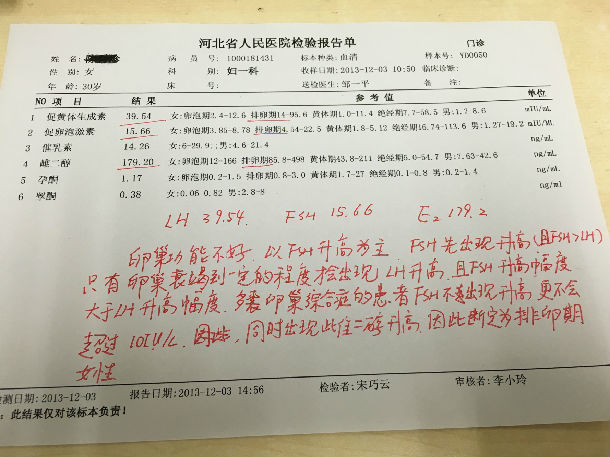 河北省人民医院检验报告单
门诊
姓 名: 病 员 号: 1000181431 标本种类: 血清 样本号: YD0050
性 别: 女 科 别: 妇一科 收样日期: 2013-12-03 10:50 临床诊断:
年 龄: 30岁 床 号: 送检医生: 邹一平 备 注:
NO 项 目 结 果 参 考 值 单位
1 促黄体生成素 39.54 女:卵泡期2.4-12.6 排卵期14-95.6 黄体期1.0-11.4 绝经期7.7-58.5 男:1.7-8.6 mIU/mL
2 促卵泡激素 15.66 女:卵泡期3.85-8.78 排卵期4.54-22.5 黄体期1.8-5.12 绝经期16.74-113.6 男:1.27-19.2 mIU/mL
3 催乳素 14.26 女:6-29.9; 男:4.6-21.4 ng/mL
4 雌二醇 179.20 女:卵泡期12-166 排卵期85.8-498 黄体期43.8-211 绝经期5.0-54.7 男:7.63-42.6 pg/mL
5 孕酮 1.17 女:卵泡期0.2-1.5 排卵期0.8-3.0 黄体期1.7-27 绝经期0.1-0.8 男:0.2-1.4 ng/ml
6 睾酮 0.38 女:0.06-0.82 男:2.8-8 ng/ml
LH 39.54 FSH 15.66 E2 179.2
卵巢功能不好, 以FSH升高为主, FSH先出现升高(且FSH>LH)
只有卵巢衰竭到一定的程度才会出现LH升高, 且FSH升高幅度
大于LH升高幅度. 多囊卵巢综合症的患者FSH不会出现升高更不会
超过10IU/L. 因此, 同时出现雌二醇升高. 因此断定为排卵期
女性
检测日期: 2013-12-03 报告日期: 2013-12-03 14:56 检验者: 宋巧云 审核者: 李小玲
: 此结果仅对该标本负责!